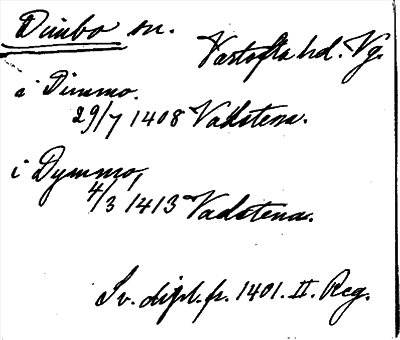 Dimbo sn.
Vartofta hd. Vg.
a Dimmo.
29/7 1408 Vadstena.
i Dymmo,
4/3 1413 Vadstena.
Sv. dipl. fr. 1401. II. Reg.